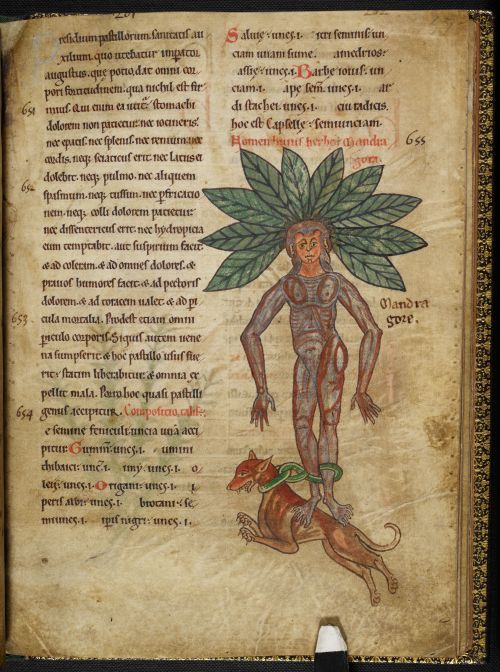 presidium pastillorum. sanitatis au
xilium. quo utebatur imperator
augustus. que potio dat omni cor
pori fortitudinem. qua nichil est fir
mius. Qui enim ea utetur. stomachi
dolorem non patietur. nec iocineris.
nec epatis. nec splenis. nec renium. nec
cordis. neque sciaticus erit. nec latus ei
dolebit. neque pulmo. nec aliquem
spasmum. neque tussim. nec perfricatio
nem. neque colli dolorem patietur.
nec dissentericus erit. nec hydropicia
eum temptabit. aut suspirium faciet.
& ad coleram. & ad omnes dolores. &
prauos humores facit. & ad pectoris
dolorem. & ad toracem ualet. & ad pe
cula mortalia. Prodest etiam omni
periculo corporis. Siquis autem uene
na sumpserit. & hoc pastillo usus fue
rit. statim liberabitur. & omnia ex
pellit mala. Porro hoc quasi pastilli
genus accipitur. Compositio talis.
e semine feniculi. uncia una acci
pitur. Gummi. unces. i. umini
unces. i. o
unces. i. Origani. unces. i.
peris albi. unces. i. se
miunces. i. iperis nigri. unces. i.
Saluie. unces. i. semis. un
ciam unam sume. amedrios.
unces. i. Barbe iouis. un
ciam. i. ape sem. unces. i. ar
di stachei. unces. i. radicis.
hoc est Capselle. semunciam.
Nomen huius herbe Mandra
gora.
Mandra
gore.
651
652
653
654
655